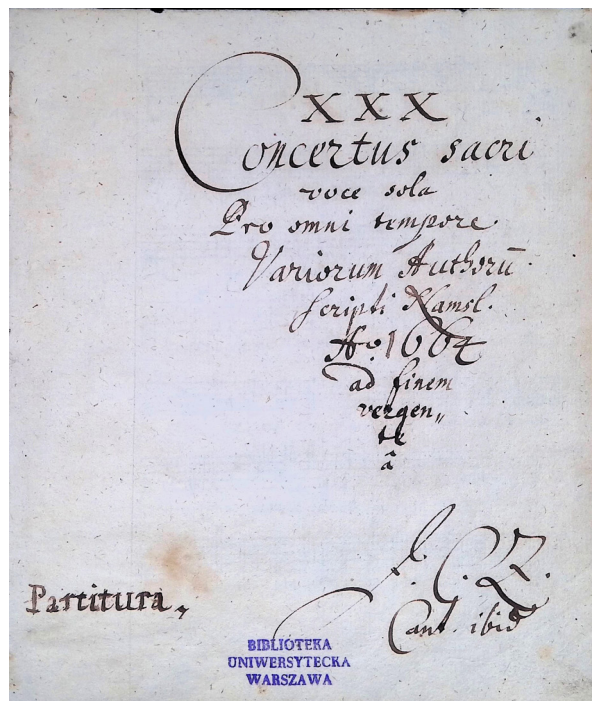 XXX
Concertus sacri
voce sola
Pro omni tempore.
Variorum Authorū.
scripti Namsl.
Ao. 1664
ad finem
vergen„
te
â
J. C. Z.
Cant. ibid
Partitura,
BIBLIOTEKA
UNIWERSYTECKA
WARSZAWA